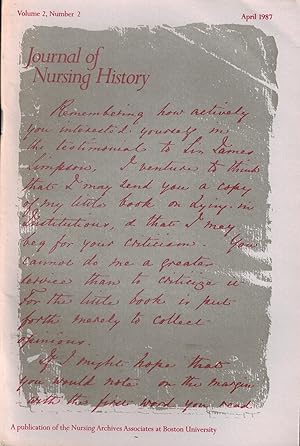 Volume 2, Number 2
April 1987
Journal of
Nursing History
Remembering how actively
you interested yourself in
the testimonial to Sir James
Simpson, I venture to think
that I may send you a copy
of my little book on Lying-in
Institutions, & that I may
beg for your criticism. You
cannot do me a greater
service than to criticize it
for the little book is put
forth merely to collect
opinions.
If I might hope that
you would note on the margin
forth the first word you read
A publication of the Nursing Archives Associates at Boston University